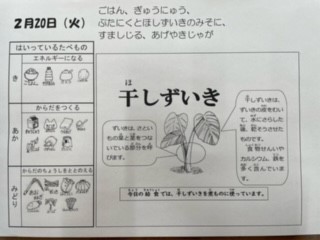 2月20日(火)
ごはん、ぎゅうにゅう、
ぶたにくとほしずいきのみそに、
すましじる、あげやきじゃが
はいっているたべもの
き
エネルギーになる
あか
からだをつくる
みどり
からだのちょうしをととのえる
ほ
干しずいき
ずいきは、さとい
もの葉と茎をつな
いでいる部分を呼
びます。
干しずいきは、
ずいきの皮をむい
て、水にさらした
後、乾そうさせた
ものです。
食物せんいや
カルシウム、鉄を
多く含んでいます。
今日の給食では、干しずいきを煮ものに使っています。